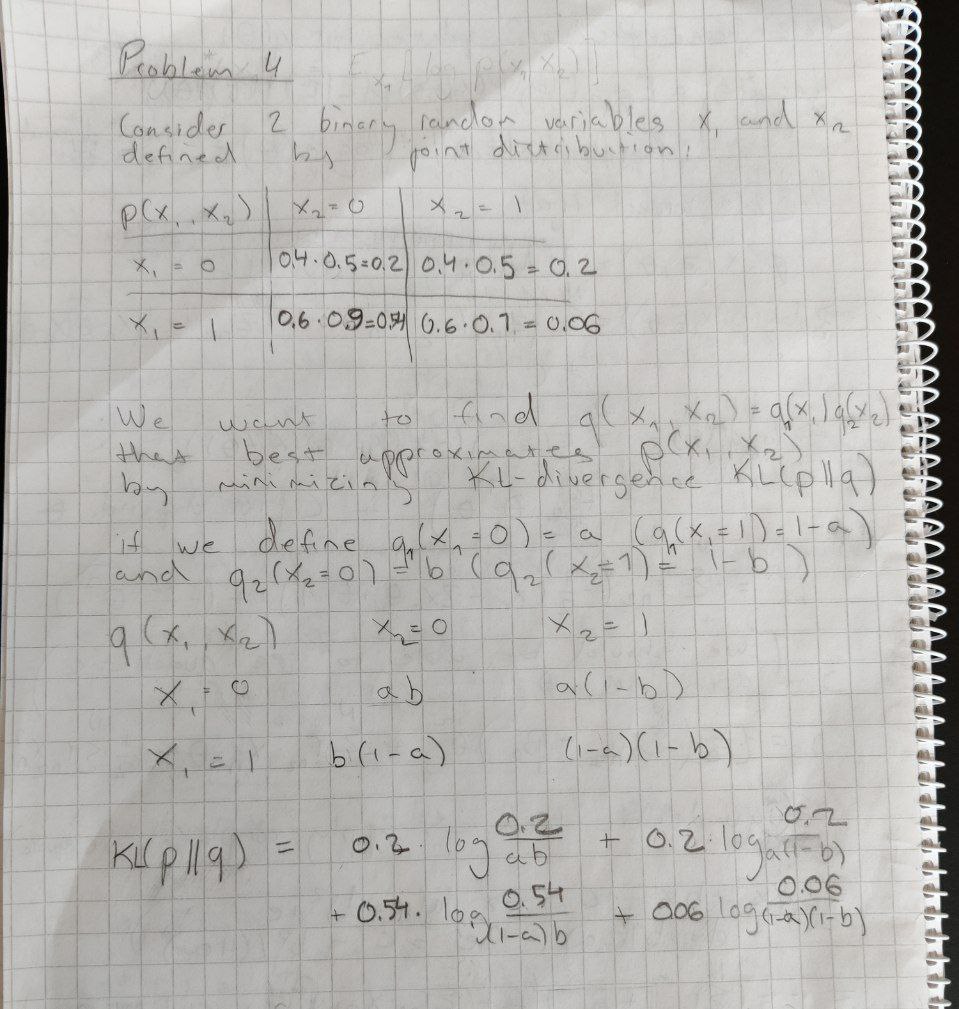 Problem 4
Consider 2 binary random variables x₁ and x₂
defined by joint distribution:
p(x₁, x₂) x₂=0 x₂ = 1
x₁ = 0 0.4·0.5=0.2 0.4·0.5 = 0.2
x₁ = 1 0.6·0.9=0.54 0.6·0.1 = 0.06
We want to find q(x₁, x₂) = q₁(x₁)q₂(x₂)
that best approximates p(x₁, x₂)
by minimizing KL-divergence KL(p||q)
if we define q₁(x₁=0) = a (q₁(x₁=1)=1-a)
and q₂(x₂=0) = b (q₂(x₂=1)= 1-b)
q(x₁, x₂) x₂=0 x₂= 1
x₁ = 0 ab a(1-b)
x₁ = 1 b(1-a) (1-a)(1-b)
KL(p||q) = 0.2·log 0.2/ab + 0.2·log 0.2/a(1-b)
+ 0.54·log 0.54/(1-a)b + 006 log 0.06/(1-a)(1-b)